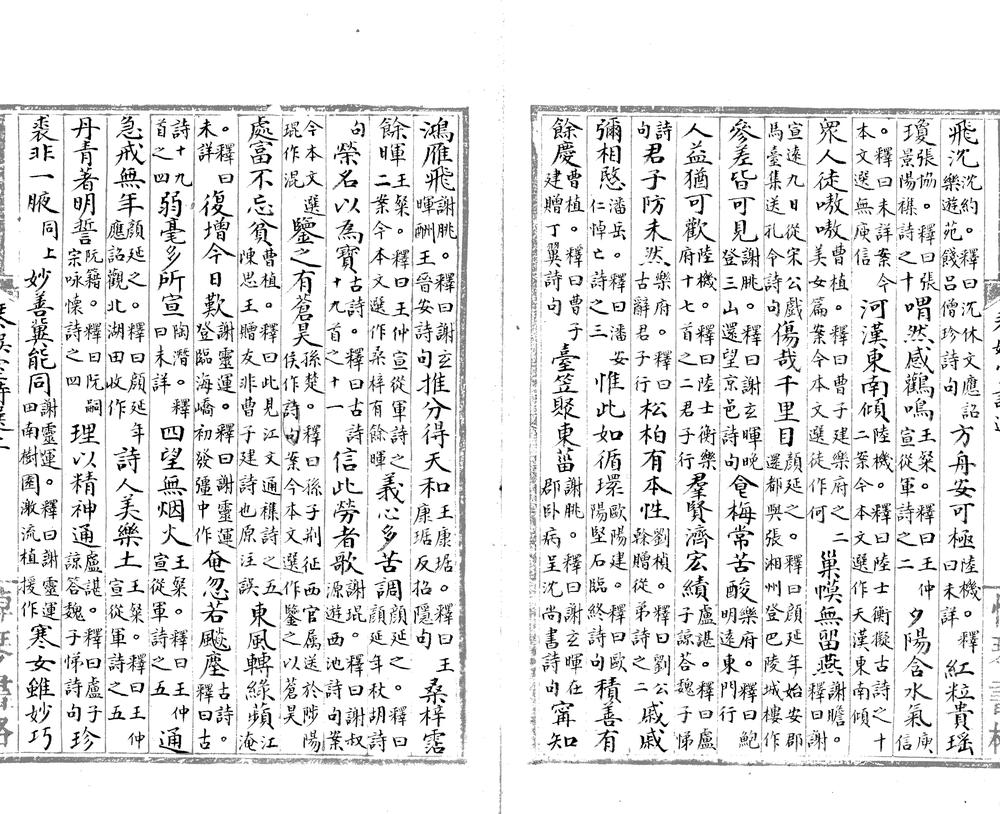 飛沈沈約。釋曰沈休文應詔樂遊苑餞呂僧珍詩句方舟安可極陸機。釋曰未詳紅粒貴瑤
瓊張協。釋曰張景陽襍詩之十喟然感鸛鳴王粲。釋曰王仲宣從軍詩之二夕陽含水氣庾信
。釋曰未詳案今本文選無庾信河漢東南傾陸機。釋曰陸士衡擬古詩之十二案今本文選作天漢東南傾
眾人徒嗷嗷曹植。釋曰曹子建樂府之二美女篇案今本文選徒作何巢幙無留燕謝瞻。釋曰謝
宣遠九日從宋公戲馬臺集送孔令詩句傷哉千里目顏延之。釋曰顏延年始安郡還都與張湘州登巴陵城樓作
參差皆可見謝朓。釋曰謝玄暉晚登三山還望京邑詩句食梅常苦酸樂府。釋曰鮑明遠東門行
人益猶可歡陸機。釋曰陸士衡樂府十七首之二君子行羣賢濟宏績盧諶。釋曰盧子諒荅魏子悌
詩句君子防未然樂府。釋曰古辭君子行松柏有本性劉楨。釋曰劉公幹贈從弟詩之二戚戚
彌相愍潘岳。釋曰潘安仁悼亡詩之三惟此如循環歐陽建。釋曰歐陽堅石臨終詩句積善有
餘慶曹植。釋曰曹子建贈丁翼詩句臺笠聚東菑謝朓。釋曰謝玄暉在郡卧病呈沈尚書詩句甯知
鴻雁飛謝朓。釋曰謝玄暉酬王晉安詩句推分得天和王康琚。釋曰王康琚反招隱句桑梓霑
餘暉王粲。釋曰王仲宣從軍詩之二案今本文選作桑梓有餘暉義心多苦調顏延之。釋曰顏延年秋胡詩
句榮名以為寶古詩。釋曰古詩十九首之十一信此勞者歌謝琨。釋曰謝叔源遊西池詩句案
今本文選琨作混鑒之有蒼昊孫楚。釋曰孫子荆征西官屬送於陟陽侯作詩句案今本文選作鑒之以蒼昊
處富不忘貧曹植。釋曰此見江文通襍詩之五陳思王贈友非曹子建詩也原注誤東風轉綠蘋江淹
。釋曰未詳復增今日歎謝靈運。釋曰謝靈運登臨海嶠初發彊中作奄忽若飈塵古詩。釋曰古
詩十九首之四弱毫多所宣陶潛。釋曰未詳四望無烟火王粲。釋曰王仲宣從軍詩之五通
急戒無年顏延之。釋曰顏延年應詔觀北湖田收作詩人美樂土王粲。釋曰王仲宣從軍詩之五
丹青著明誓阮籍。釋曰阮嗣宗咏懷詩之四理以精神通盧諶。釋曰盧子諒答魏子悌詩句珍
裘非一腋同上妙善冀能同謝靈運。釋曰謝靈運田南樹園激流植援作寒女雖妙巧